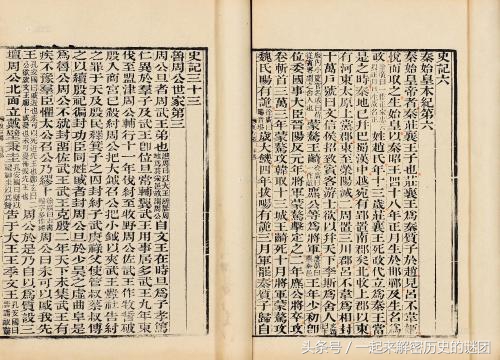 史記六
秦始皇本紀第六
秦始皇帝者秦莊襄王子也莊襄王爲秦質子於趙見呂不韋姬
悅而取之生始皇以秦昭王四十八年正月生於邯鄲及生名爲
政姓趙氏年十三歲莊襄王死政代立爲秦王當
是之時秦地已并巴蜀漢中越宛有郢置南郡矣北收上郡以東
有河東太原上黨郡東至滎陽滅二周置三川郡呂不韋爲相封
十萬戶號曰文信侯招致賓客游士欲以并天下李斯爲舍人
蒙驁王齮麃公等爲將軍王年少初即
位委國事大臣晉陽反元年將軍蒙驁擊定之二年麃公將卒攻
卷斬首三萬三年蒙驁攻韓取十三城王齮死十月將軍蒙驁攻
魏氏暢有詭歲大饑四年拔暢有詭三月軍罷秦質子歸自
史記三十三
魯周公世家第三
周公旦者周武王弟也自文王在時旦爲子孝篤
仁異於羣子及武王即位旦常輔翼武王用事居多武王九年東
伐至盟津周公輔行十一年伐紂至牧野周公佐武王作牧誓破
殷入商宮已殺紂周公把大鉞召公把小鉞以夾武王釁社告紂
之罪于天及殷民釋箕子之囚封紂子武庚祿父使管叔蔡叔傅
之以續殷祀徧封功臣同姓戚者封周公旦於少昊之虛曲阜是
爲魯公周公不就封留佐武王武王克殷二年天下未集武王有
疾不豫羣臣懼太公召公乃繆卜周公曰未可以戚我先
王周公於是乃自以爲質設三
壇周公北面立戴璧秉圭告于大王王季文王
头条号／一起来解密历史的谜团